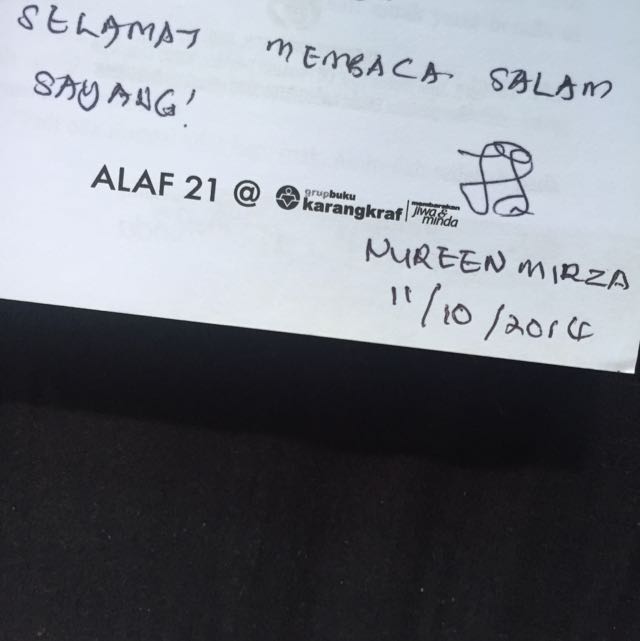 SELAMAT MEMBACA SALAM
SAYANG!
ALAF 21 @ grupbuku karangkraf membarakan jiwa & minda
NUREEN MIRZA
11/10/2014